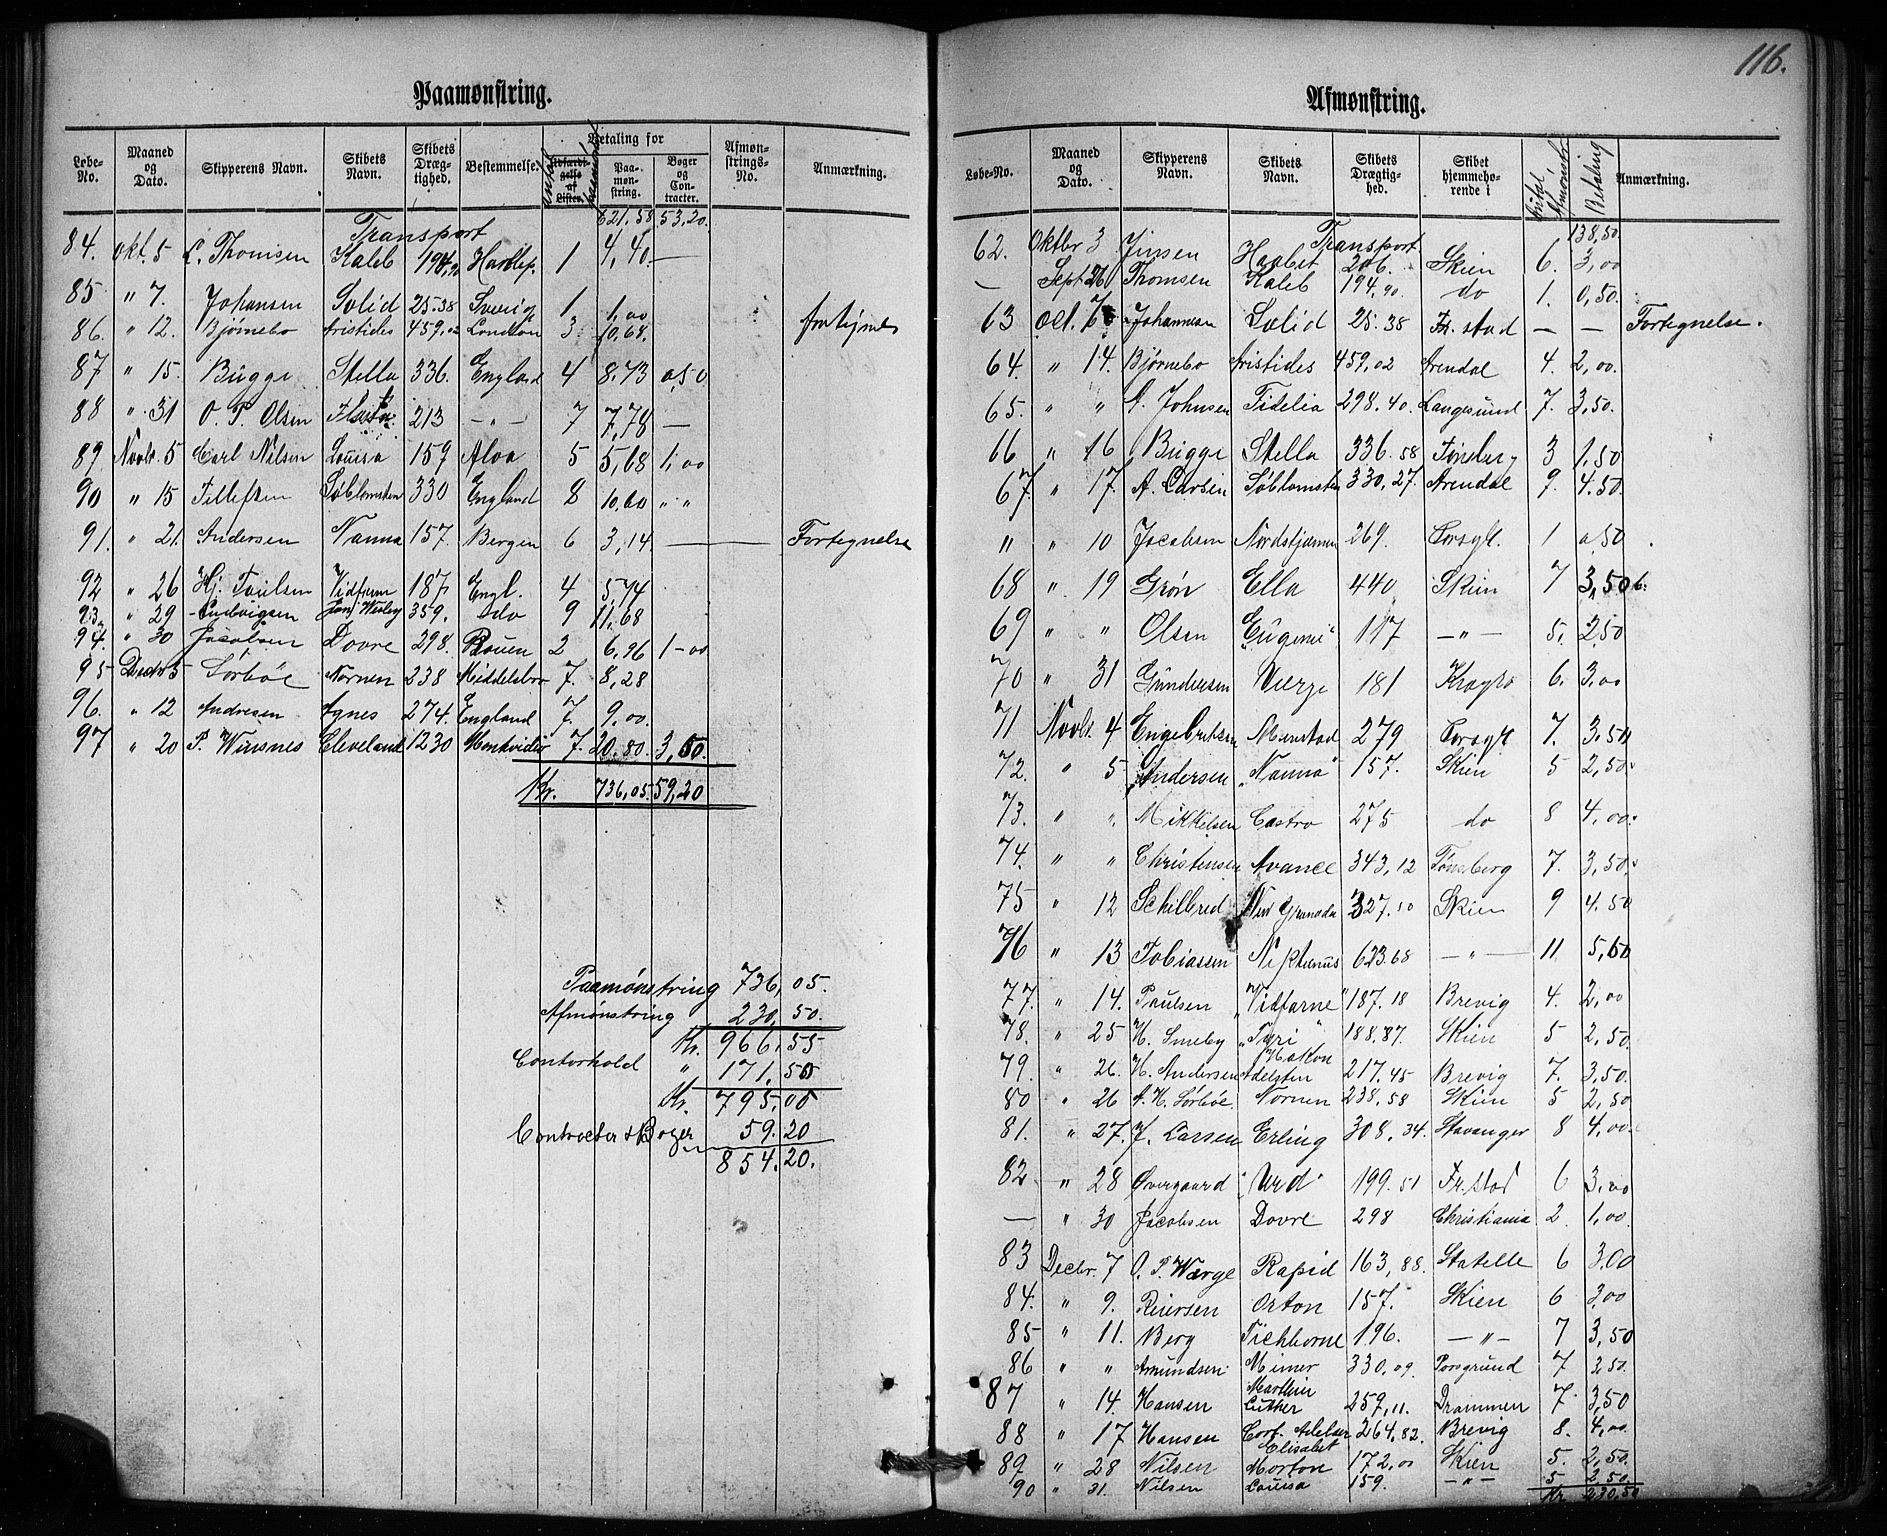 116.
Paamønstring.
Løbe-No. Maaned og Dato. Skipperens Navn. Skibets Navn. Skibets Dræg-tighed. Bestemmelse. Betaling for Afmøn-strings-No. Anmærkning.
Udfærdi-gelse af Lister. Paa-møn-string. Bøger og Con-tracter.
Transport 621,58 53,20
84. Okt. 5 L. Thomsen Kaleb 194,90 Hartlep. 1 4,40 —
85 " 7. Johansen Solid 25.38 Sverige 1 1,00
86. " 12. Bjørnebo Aristides 459.02 London 3 10,68.
87 " 15. Bugge Stella 336. England 4 8.73 0,50
88 " 31 O. P. Olsen 213 — " — 7 7,78 —
89 Novbr. 5 Carl Nilsen Louisa 159 Aloa 5 5,68 1,00
90 " 15 Tellefsen Søblomsten 330 England 8 10,60 " "
91. " 21. Andersen Nanna 157. Bergen 6 3,14 — Fortegnelse
92 " 26 Hj. Poulsen Vidfarne 187 Engl. 4 5,74
93. " 29 Ludvigsen John Wesley 359. do 9 11,68
94. " 30 Jacobsen Dovre 298. Rouen 2 6,96 1-00
95 Decbr 5 Sørbøe Nornen 238 Middelsbro 7. 8,28
96. " 12 Andresen Agnes 274. England 7. 9.00
97 " 20 P. Winsnes Cleveland 1230 Montvideo 7. 20.80 3,50.
Kr. 736,05. 59,20
Paamønstring 736,05.
Afmønstring 230,50.
Kr. 966,55
Contorhold " 171,50
Kr. 795,05
Contracter & Bøger 59.20
854.20.
Afmønstring.
Løbe-No. Maaned og Dato. Skipperens Navn. Skibets Navn. Skibets Drægtig-hed. Skibet hjemmehø-rende i Antal Afmønstr. Betaling Anmærkning.
Transport 138,50.
62. Oktbr 3 Jensen Haabet 206. Skien 6. 3,00
— Sept 26 Thomsen Kaleb 194,90. do 1. 0,50.
63 Oct. 7 Johannesen Solid 25.38 Fr. stad — — Fortegnelse.
64. " 14. Bjørnebo Aristides 459,02 Arendal 4. 2,00.
65. " " A. Johnsen Fidelia 298.40. Langesund 7. 3,50.
66 " 16 Bugge Stella 336.58 Tønsberg 3 1,50
67. " 17. A. Larsen Søblomsten 330,27. Arendal 9. 4.50.
" " 10 Jacobsen Nordstjernen 269. Porsgr. 1 0,50
68 " 19 Grøn Ella 440 Skien 7 3,50
69 " " Olsen "Eugenie" 117 — " — 5. 2,50
70 " 31 Gundersen Verge 181 Kragrø 6. 3,00
71 Novbr. 4 Engebretsen Menstad 279 Porsgr. 7. 3,50
72. " 5 Andersen "Nanna" 157. Skien 5 2,50
73. " " Mikkelsen Castro 275 do 8 4,00
74. " " Christensen Avance 343,12 Tønsberg 7. 3,50
75 " 12 Schilbred 327.10 Skien 9 4.50
76 " 13 Tobiassen Neptunus 623.68 — " — 11 5,50
77. " 14. Paulsen "Vidfarne" 187.18 Brevig 4. 2,00
78. " 25 H. Smeby "Fyri" 188.87. Skien 5 2,50.
79. " 26. H. Andersen Hakon Adelsten 217.45 Brevig 7. 3,50.
80 " 26 A. H. Sørbøe. Nornen 238.58 Skien 5 2,50
81. " 27. J. Larsen Erling 308.34. Stavanger 8 4,00
82 " 28 Overgaard "Urd" 199.51 Fr. stad 6 3,00
— " 30 Jacobsen Dovre 298 Christiania 2 1,00
83 Decbr. 7 O. P. Værge Rapid 163,88. Statelle 6 3.00
84. " 9. Reiersen Orton 157. Skien 6 3,00
85 " 11. Berg Tichborne 196. — " — 7 3,50
86 " " Amundsen Mimer 330,09. Porsgrund 7 3,50.
87 " 14. Hansen Marthin Luther 257,11. Drammen 7. 3,50
88 " 17 Hansen Cort Adelaer 264,82. Brevig 8. 4,00.
89 " 28 Nilsen Elisabet Morton 172,00 Skien 5. 2,50.
90 " 31. Nilsen Louisa 159. — " — 5 2,50
Kr 230,50